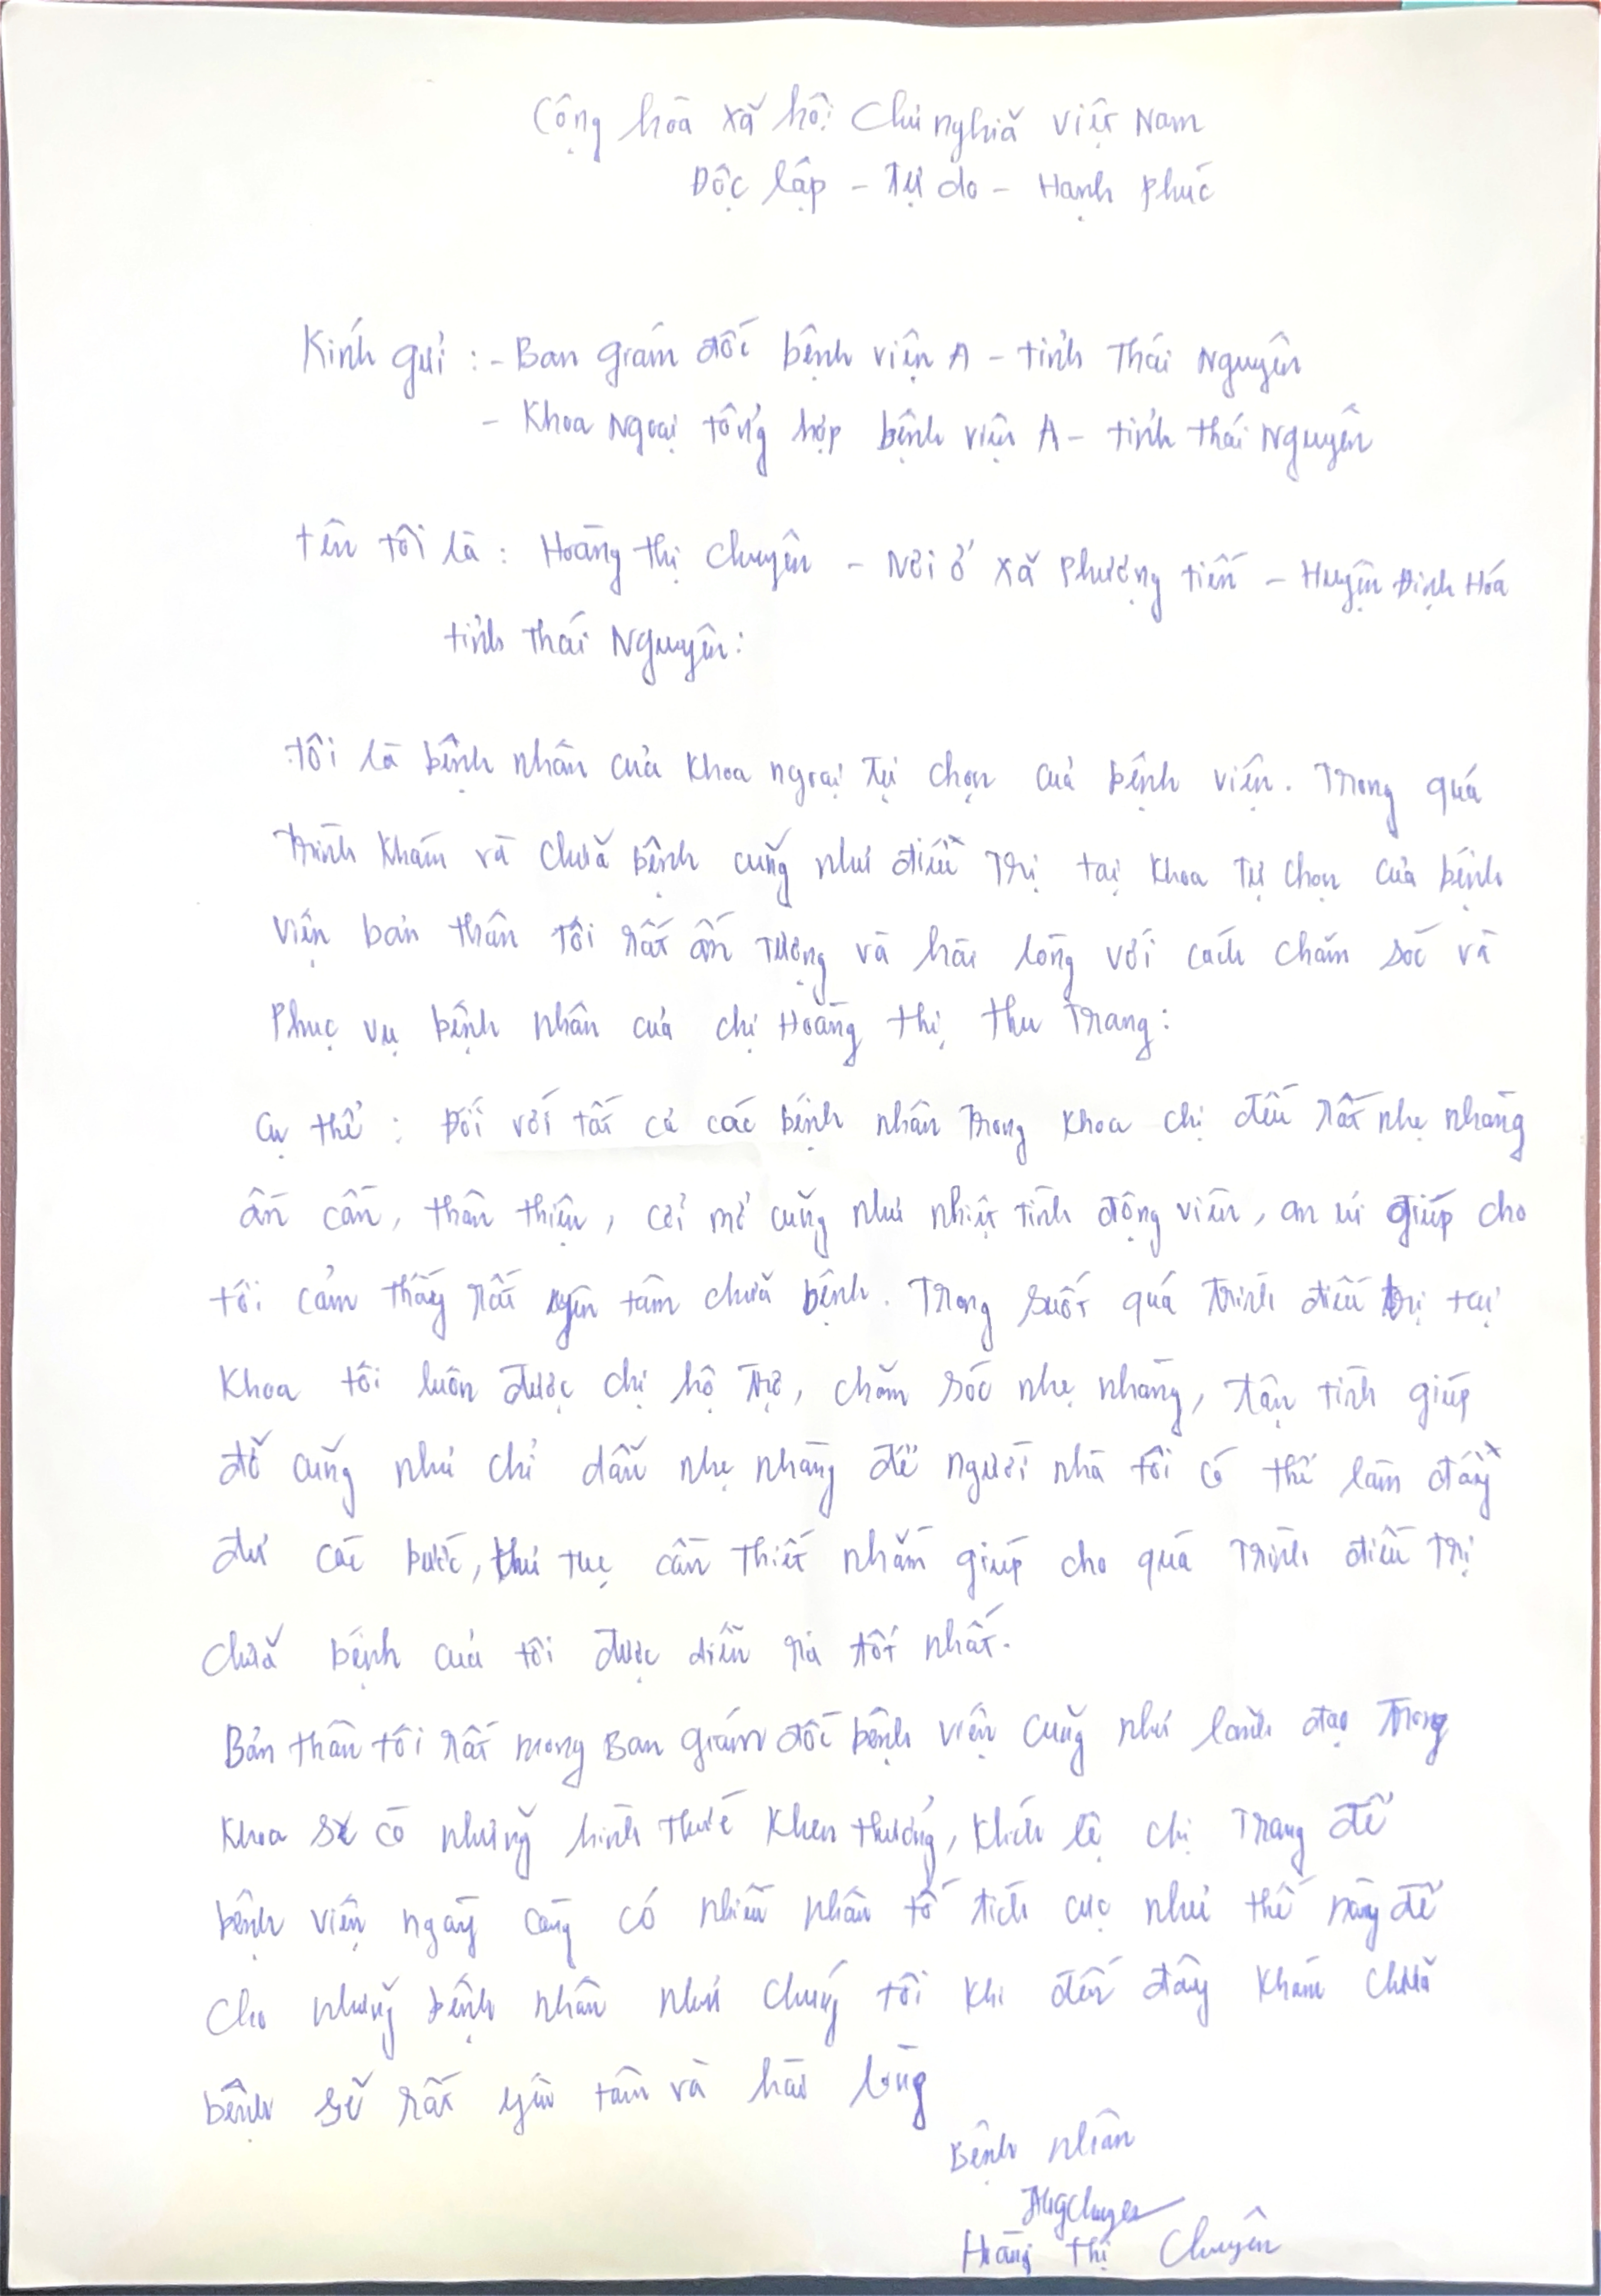 Cộng hòa xã hội Chủ nghĩa Việt Nam
Độc lập - Tự do - Hạnh phúc
Kính gửi : - Ban giám đốc bệnh viện A - tỉnh Thái Nguyên
- Khoa Ngoại tổng hợp bệnh viện A - tỉnh thái Nguyên
tên tôi là : Hoàng thị Chuyên - Nơi ở xã Phượng tiến - Huyện Định Hóa
tỉnh Thái Nguyên:
tôi là bệnh nhân của khoa ngoại Tự chọn của bệnh viện. Trong quá
trình khám và chữa bệnh cũng như điều Trị tại khoa Tự chọn của bệnh
viện bản thân tôi rất ấn tượng và hài lòng với cách chăm sóc và
Phục vụ bệnh nhân của chị Hoàng thị thu Trang:
cụ thể : Đối với tất cả các bệnh nhân trong khoa chị đều rất nhẹ nhàng
ân cần, thân thiện, cởi mở cũng như nhiệt tình động viên, an ủi giúp cho
tôi cảm thấy rất yên tâm chữa bệnh. Trong suốt quá trình điều trị tại
khoa tôi luôn được chị hộ trợ, chăm sóc nhẹ nhàng, tận tình giúp
đỡ cũng như chỉ dẫn nhẹ nhàng để người nhà tôi có thể làm đầy
đủ các bước, thủ tục cần thiết nhằm giúp cho quá trình điều trị
chữa bệnh của tôi được diễn ra tốt nhất.
Bản thân tôi rất mong Ban giám đốc bệnh viện cũng như lãnh đạo trong
khoa sẽ có những hình thức khen thưởng, khích lệ chị Trang để
bệnh viện ngày càng có nhiều nhân tố tích cực như thế này để
cho những bệnh nhân như chúng tôi khi đến đây khám chữa
bệnh sẽ rất yên tâm và hài lòng
Bệnh nhân
Hoàng Thị Chuyên